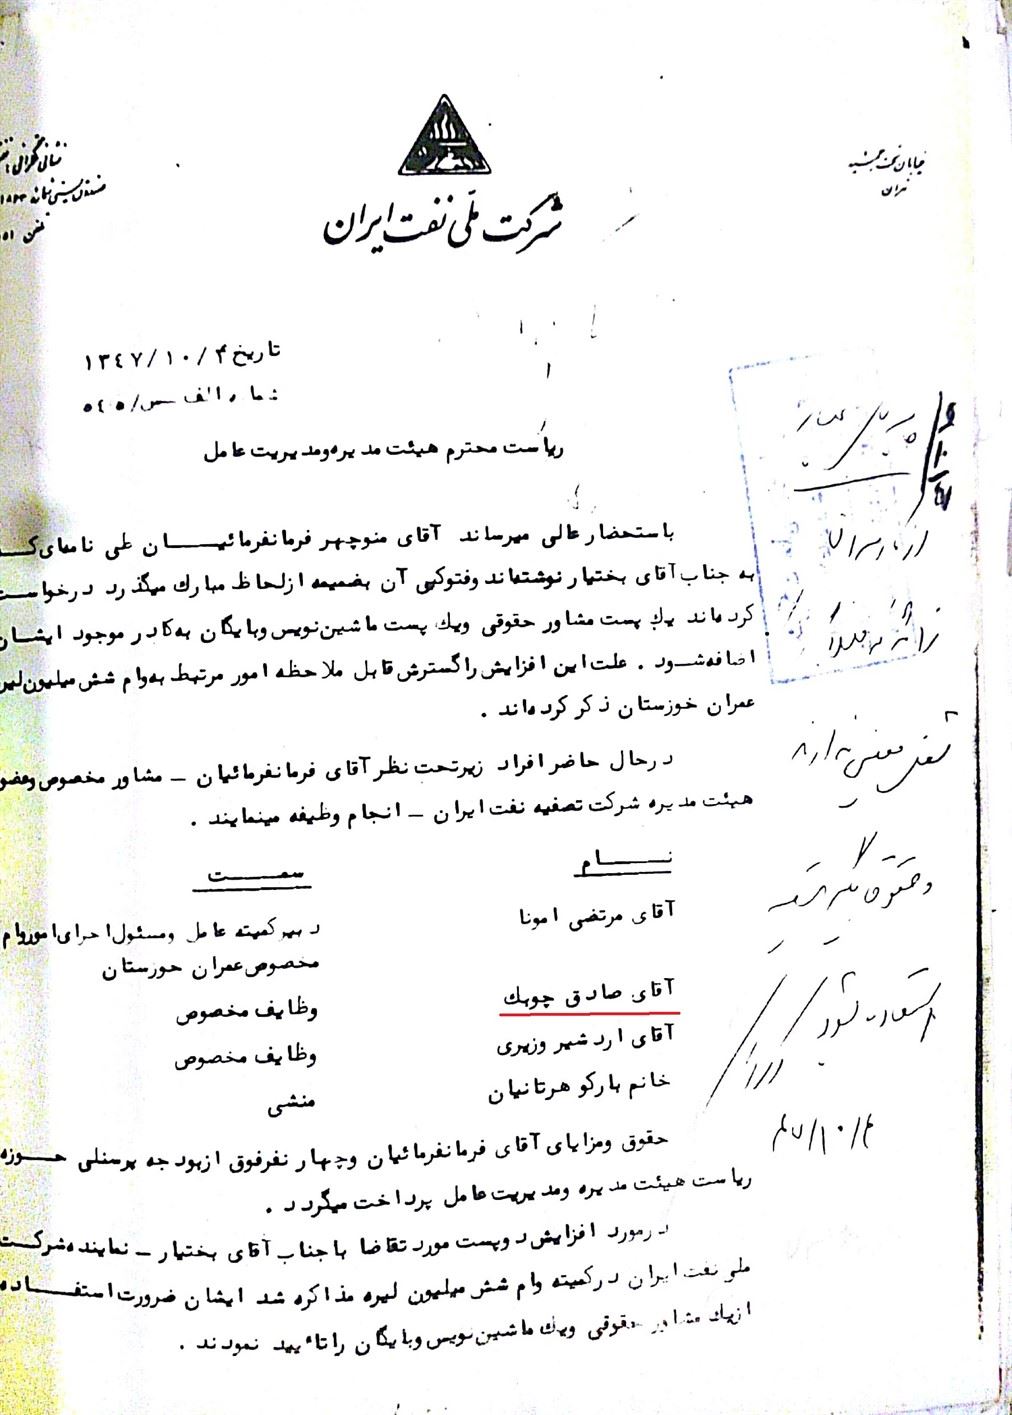 خیابان تخت جمشید
تهران
نشانی تلگرافی:
صندوق پستی شماره ۱۸۶۳
تلفن
شرکت ملّی نفت ایران
تاریخ ۱۳٤۷/۱۰/۴
شماره الف س/٥٤٠٥
ریاست محترم هیئت مدیره ومدیریت عامل
باستحضار عالی میرساند آقای منوچهر فرمانفرمائیان طی نامه‌ای که
به جناب آقای بختیار نوشته‌اند وفتوکپی آن بضمیمه از لحاظ مبارک میگذرد درخواست
کرده‌اند یک پست مشاور حقوقی ویک پست ماشین‌نویس وبایگان به کادر موجود ایشان
اضافه شود . علت این افزایش را گسترش قابل ملاحظه امور مرتبط به وام شش میلیون لیره
عمران خوزستان ذکر کرده‌اند .
درحال حاضر افراد زیر تحت نظر آقای فرمانفرمائیان – مشاور مخصوص وعضو
هیئت مدیره شرکت تصفیه نفت ایران – انجام وظیفه مینمایند .
نام سمت
آقای مرتضی امونا دبیر کمیته عامل ومسئول اجرای امور وام
مخصوص عمران خوزستان
آقای صادق چوبک وظایف مخصوص
آقای اردشیر وزیری وظایف مخصوص
خانم بارکو هرتانیان منشی
حقوق ومزایای آقای فرمانفرمائیان وچهار نفر فوق از بودجه پرسنلی حوزه
ریاست هیئت مدیره ومدیریت عامل پرداخت میگردد .
درمورد افزایش دو پست مورد تقاضا با جناب آقای بختیار – نماینده شرکت
ملی نفت ایران در کمیته وام شش میلیون لیره مذاکره شد ایشان ضرورت استفاده
از یک مشاور حقوقی ویک ماشین‌نویس وبایگان را تائید نمودند .
شغل معینی ندارند
وحقوق بگیرند
٤٧/١٠/٤